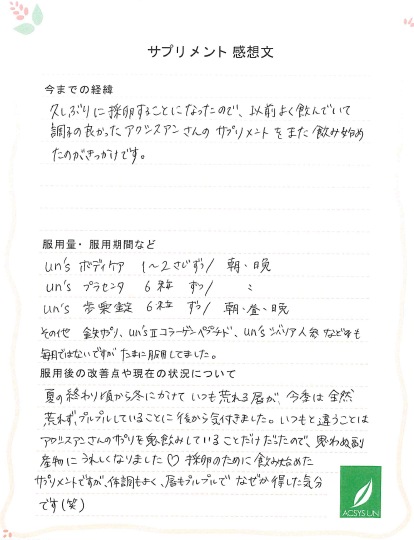 サプリメント 感想文
今までの経緯
久しぶりに採卵することになったので、以前よく飲んでいて
調子の良かったアクシスアンさんのサプリメントをまた飲み始め
たのがきっかけです。
服用量・服用期間など
un's ボディケア 1～2さじずつ/ 朝・晩
un's プラセンタ 6粒 ずつ/ 〃
un's 歩栗錠 6粒 ずつ/ 朝・昼・晩
その他 鉄サプリ、un'sⅡコラーゲンペプチド、un'sシベリア人参 など
毎日ではないですが たまに服用してました。
服用後の改善点や現在の状況について
夏の終わり頃から冬にかけて いつも荒れる唇が、今季は全然
荒れず、プルプルしていることに後から気付きました。いつもと違うことは
アクシスアンさんのサプリを飲みしていることだけだったので、思わぬ副
産物にうれしくなりました♡ 採卵のために飲み始めた
サプリメントですが、体調もよく、唇もプルプルで なぜか得した気分
です(笑)
ACSYS UN